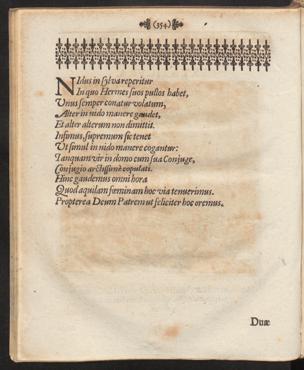 (354)
NIdus in sylva reperitur
In quo Hermes suos pullos habet,
Unus semper conatur volatum,
Alter in nido manere gaudet,
Et alter alterum non dimittit.
Infimus, supremum sic tenet
Ut simul in nido manere cogantur:
Tanquam vir in domo cum sua Conjuge,
Conjugio arctissimè copulati.
Hinc gaudemus omni hora
Quod aquilam fœminam hoc via tenuerimus.
Propterea Deum Patrem ut feliciter hoc oremus.
Duæ